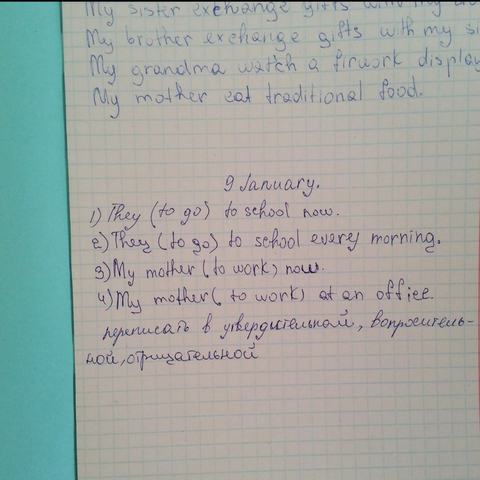 My sister exchange gifts with my
My brother exchange gifts with my si
My grandma watch a firwork display
My mother eat traditional food.
9 January.
1) They (to go) to school now.
2) They (to go) to school every morning.
3) My mother (to work) now.
4) My mother (to work) at an office.
переписать в утвердительной, вопроситель-
ной, отрицательной